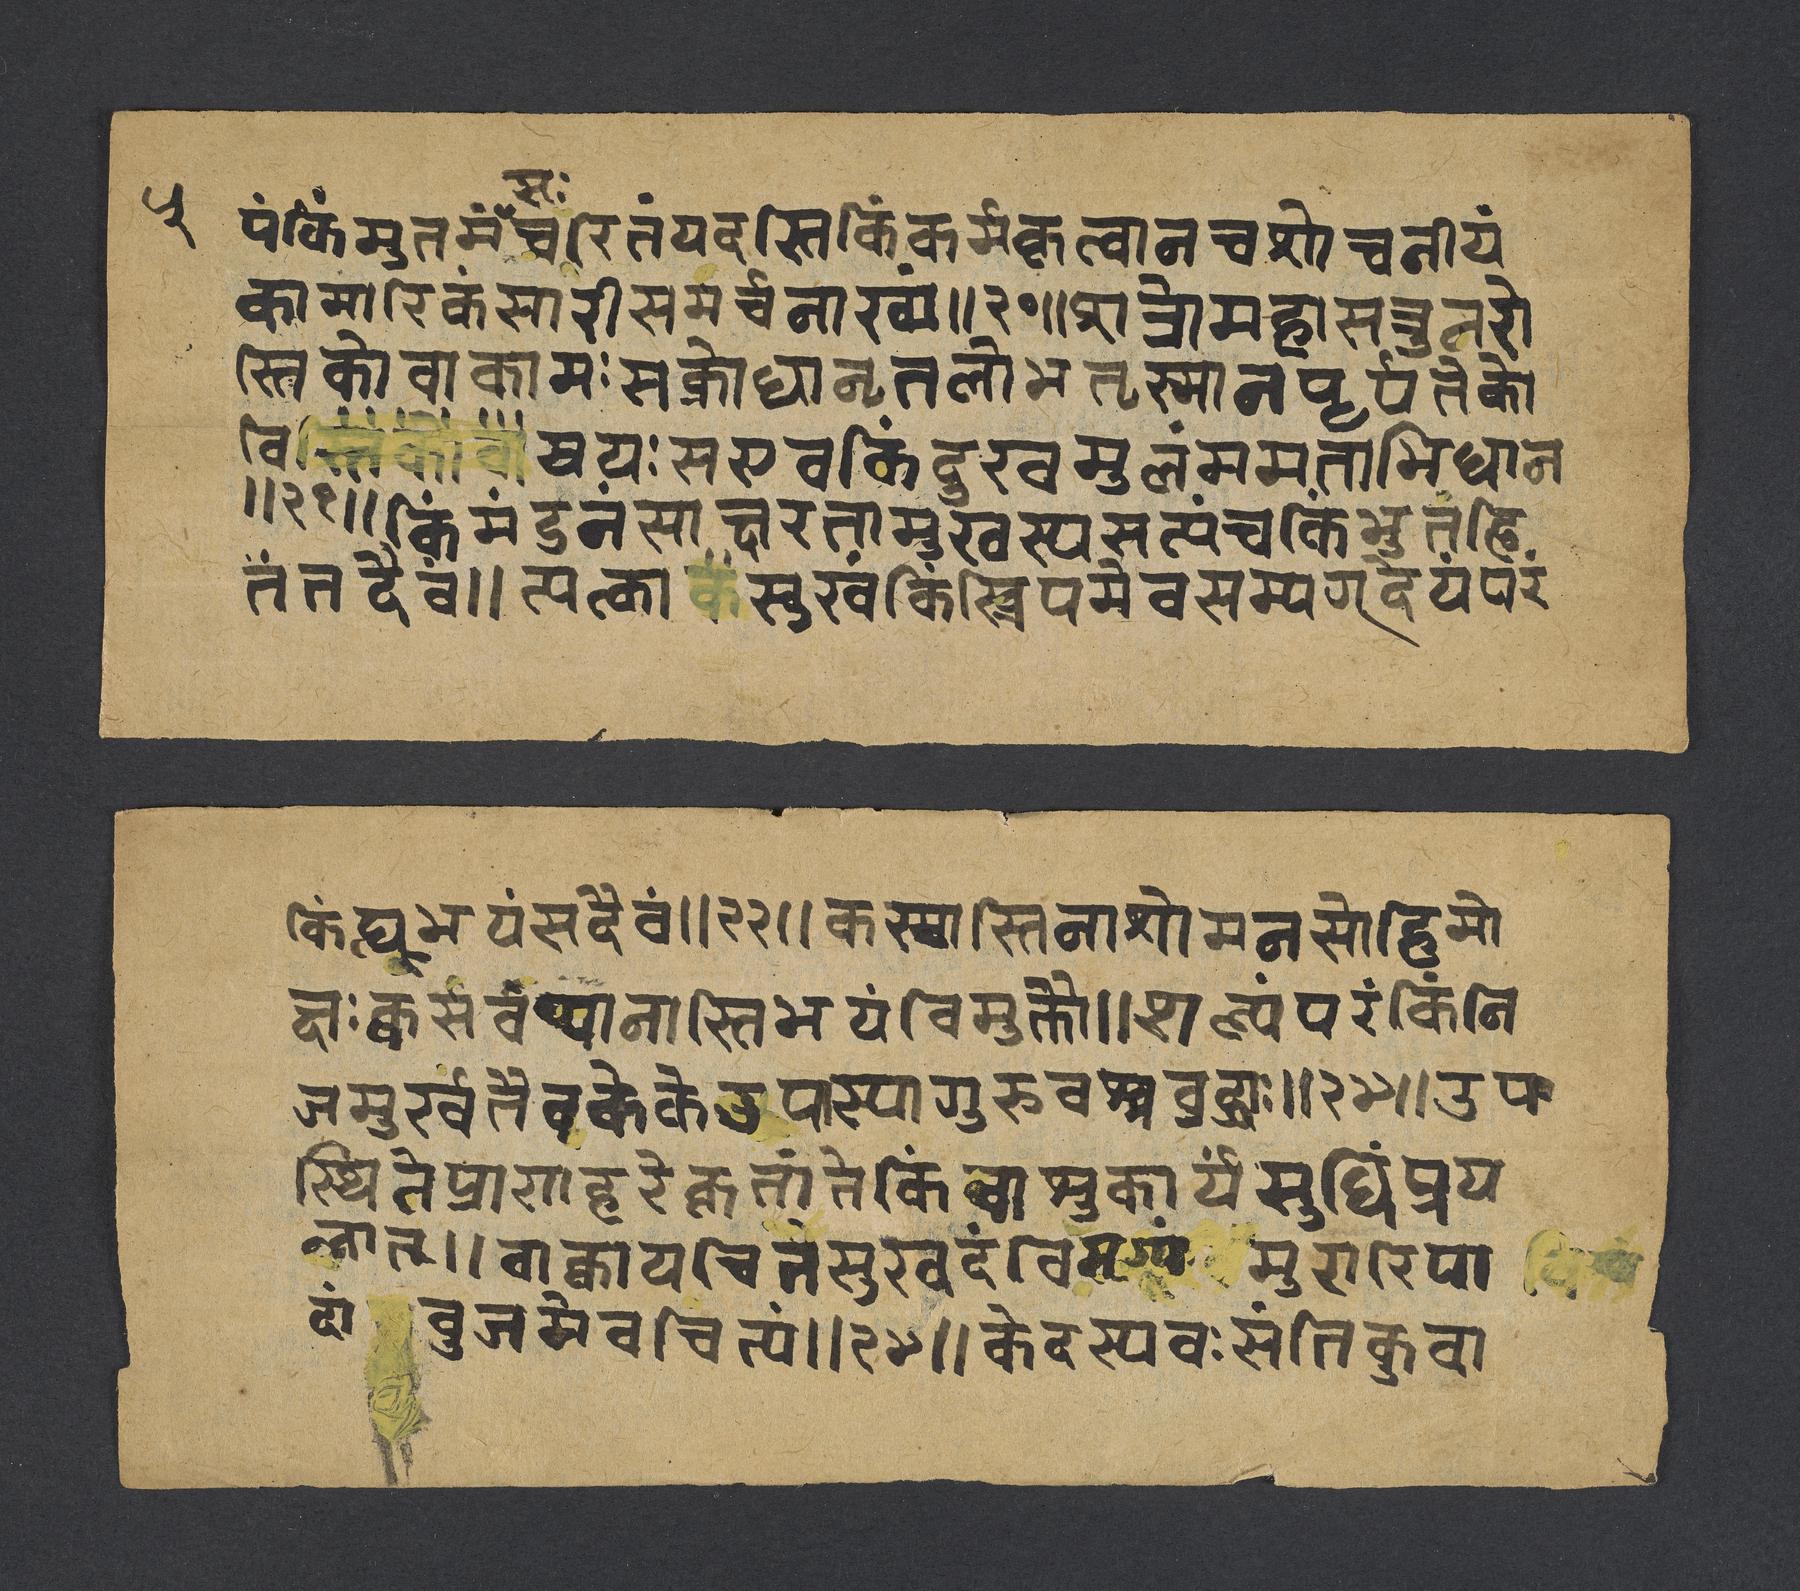 ५
सः
पं किं मु तमं च रितं यदस्ति किं कर्म कृत्वा न च शोचनीयं
कामारि कंसारी समर्च्चनाख्यं ॥ २० ॥ शत्रो महा सत्रु नरो
स्ति को वा कामः सक्रोधानृतलोभतृस्मा न पूर्यते को
वि षयः स एव किं दुख मुलं ममताभिधान
॥ २१ ॥ किं मंडनं साक्षरता मुखस्य सत्यं च किं भुतहि
तं तदैवं ॥ त्यत्का सुखं किं स्त्रिपमेव सम्यग् देयं परं
किं घ्युभयं सदैवं ॥ २२ ॥ कस्यास्ति नाशो मनसो हि मो
क्षः क्व सर्वथा नास्ति भयं विमुक्तौ ॥ शल्यं परं किं नि
जमुर्खतैव के के उपास्या गुरुवश्च वृद्धाः ॥ २४ ॥ उप
स्थिते प्राणहरे कृतांते किं वाशु कार्यं सुधिं प्रय
त्नात् ॥ वाक्कायचितं सुखदं वि मुरारि पा
दां वुजमेव चित्यं ॥ २४ ॥ के दस्यवः संति कुवा